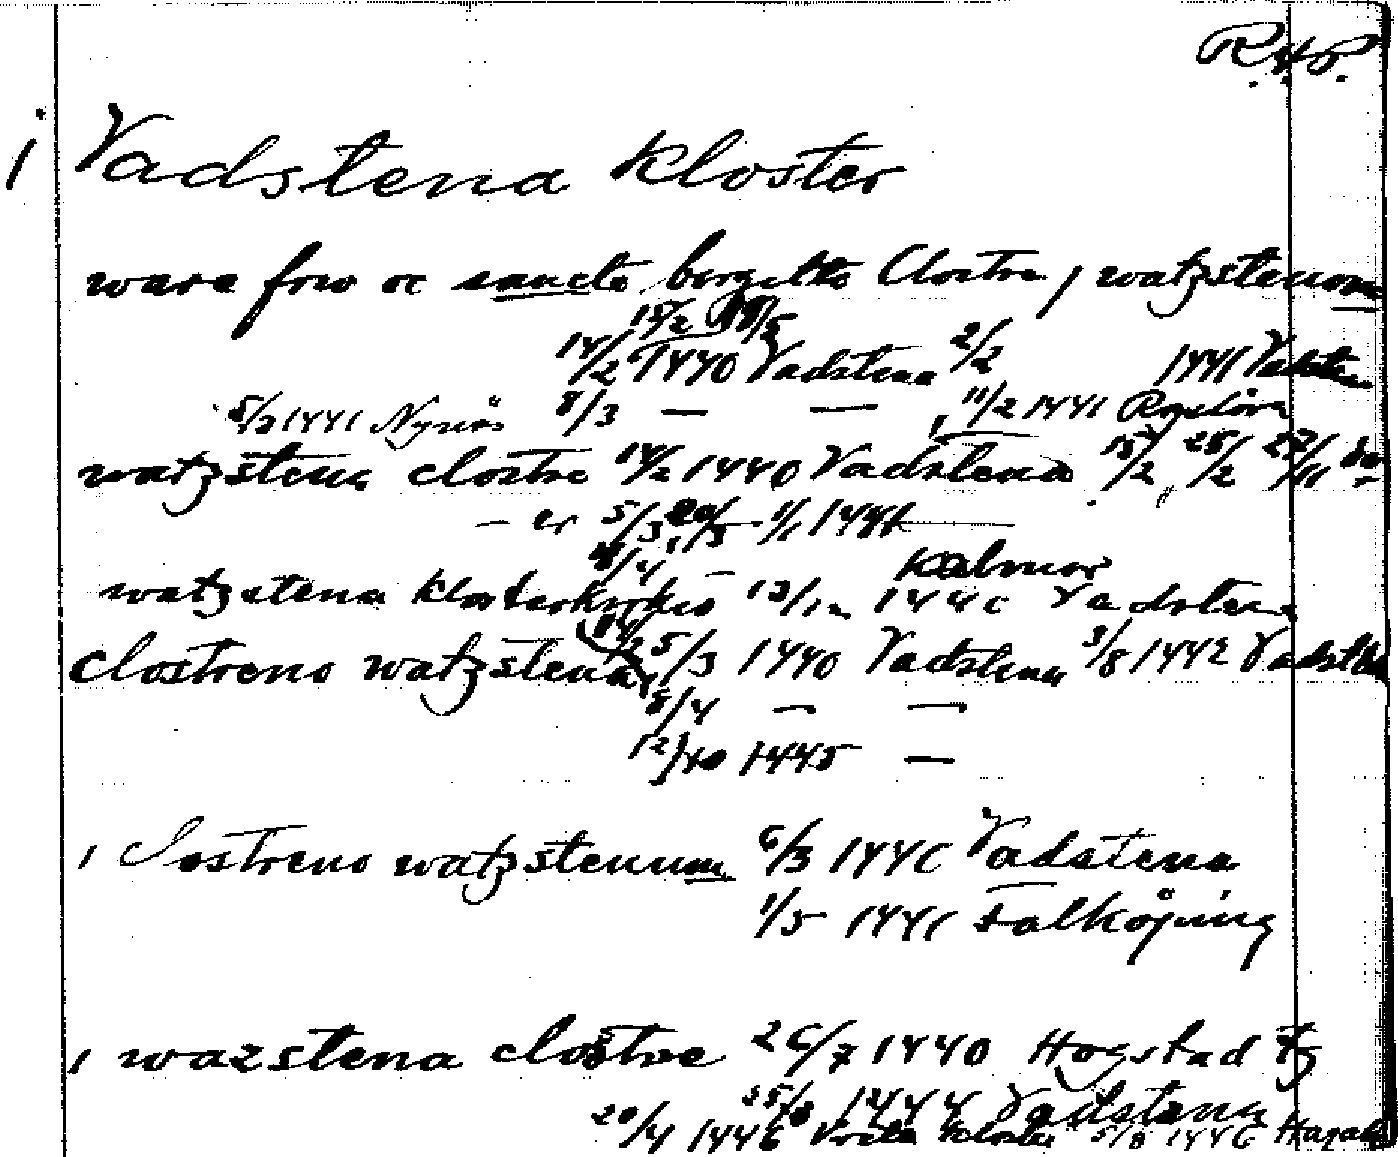 R.A.P.
i Vadstena kloster
ware frw oc sancte birgitte Clostre i watzstenom
15/2
14/2 1440 Vadstena 2/2 1441 Vadstena
5/2 1441 8/3 — — 11/2 1441
watzstena clostre 14/2 1440 Vadstena 15/2 25/2 27/11
— er 5/3 1/1
Kalmar
watzstena klosterkirkio 13/12 1440 Vadstena
clostreno watzstena 5/3 1440 Vadstena 3/8 1442 Vadstena
8/4 — —
12/10 1445 —
i Clostreno watzstenum 6/3 1440 Vadstena
1/5 1441 Falköping
i wazstena clostre 26/7 1440 Hogstad
25/8 1444 Vadstena
20/4 1446 Vreta kloster 5/8 1446